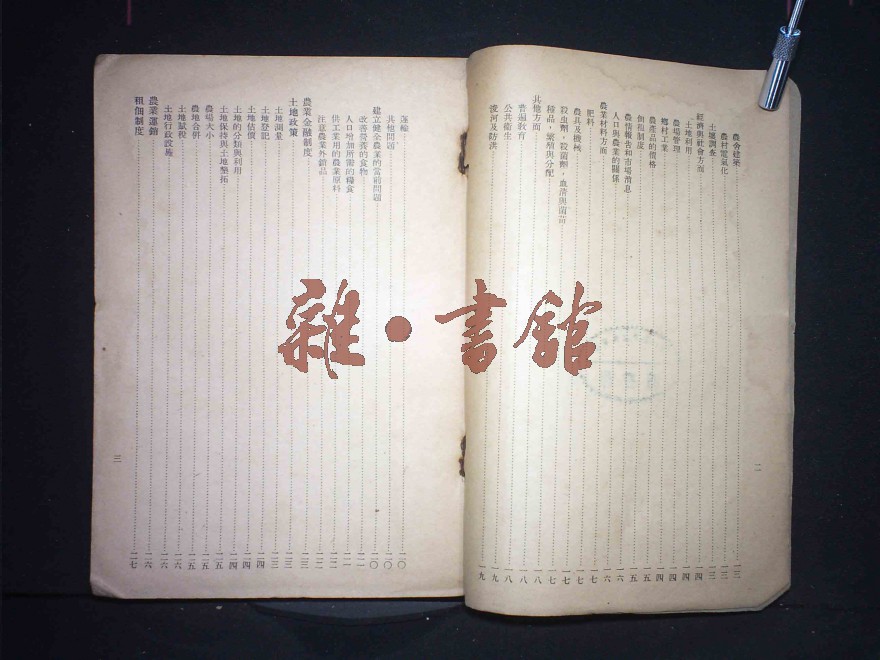 二
農舍建築 一三
農村電氣化 一三
土壤調查 一三
經濟與社會方面 一四
土地利用 一四
農場管理 一四
鄉村工業 一四
農產品的價格 一五
佃租制度 一五
農情報告和市場消息 一六
人口與農業的關係 一六
農業材料方面 一七
肥料 一七
農具及機械 一七
殺虫劑，殺菌劑，血清與菌苗 一七
種品，繁殖與分配 一八
其他方面 一八
普遍教育 一八
公共衛生 一九
浚河及防洪 一九
運輸 二〇
其他問題 二〇
建立健全農業的當前問題 二〇
改善營養的食物 二一
人口增加所需的糧食 二一
供工業用的農業原料 二二
注意農業外銷品 二二
農業金融制度 二三
土地政策 二三
土地測量 二三
土地登記 二四
土地估價 二四
土地的分類與利用 二四
土地保持與土地墾拓 二五
農場大小 二五
農地合併 二五
土地賦稅 二六
土地行政設施 二六
農業運銷 二六
租佃制度 二七
三
雜·書館